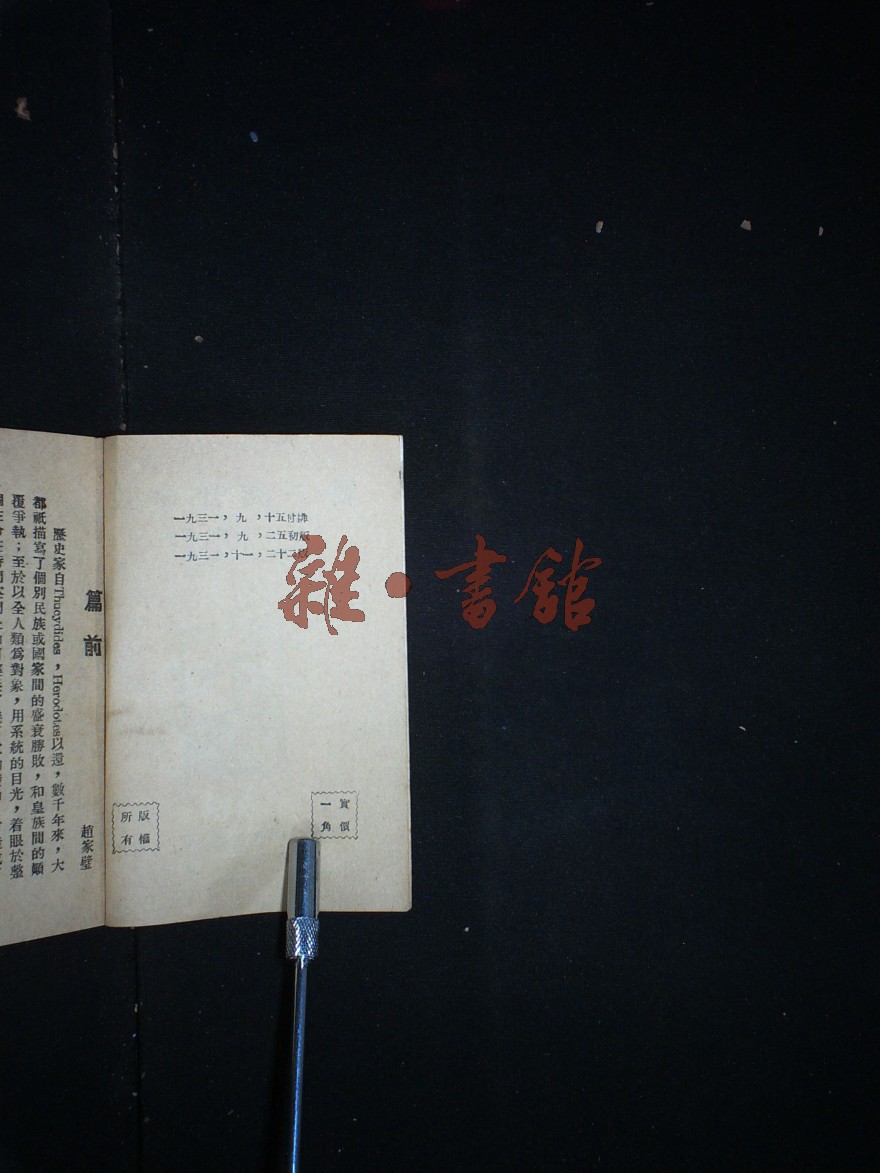 一九三一，九，十五付排
一九三一，九，二五初版
一九三一，十一，二十二版
雜·書館
實價
一角
版權
所有
篇前
趙家璧
歷史家自Thucydides，Herodotas以還，數千年來，大
都祇描寫了個別民族或國家間的盛衰勝敗，和皇族間的顚
覆爭執；至於以全人類爲對象，用系統的目光，着眼於整